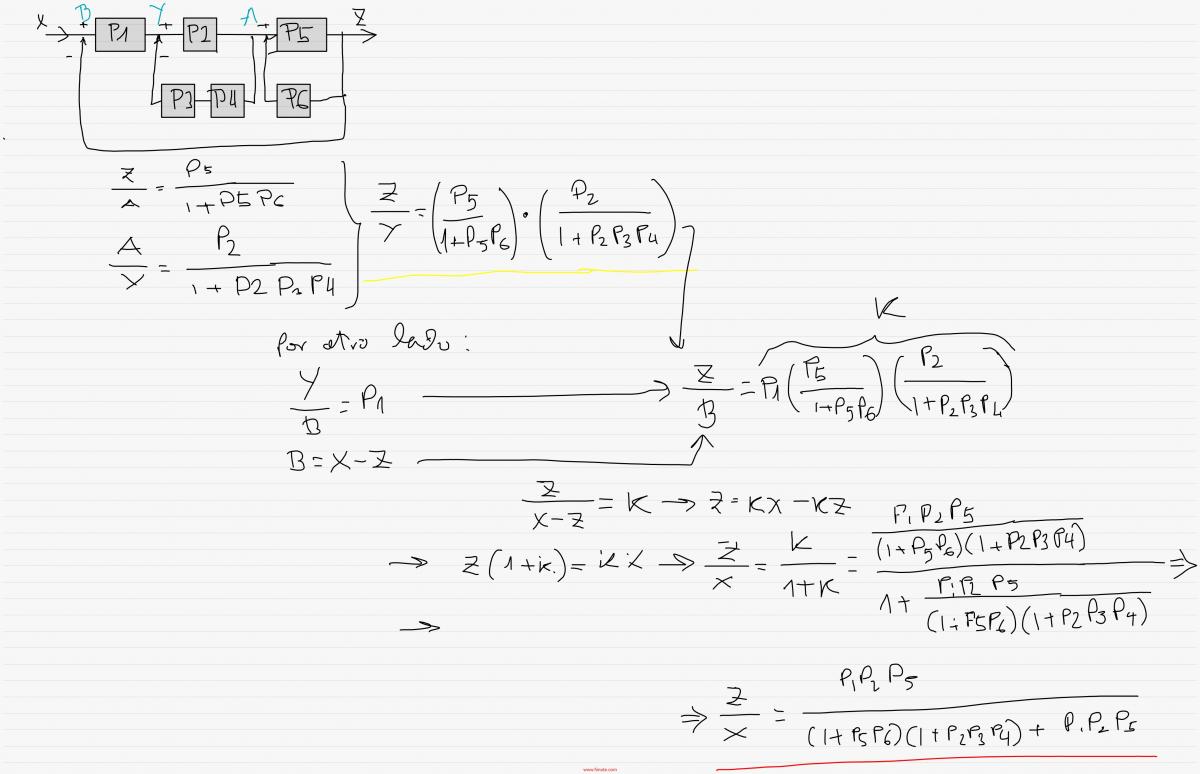 X B + P1 Y + P2 A + P5 Z
- -
P3 P4 P6
Z/A = P5/(1+P5P6)
A/Y = P2/(1+P2 P3 P4)
Z/Y = (P5/(1+P5P6)) · (P2/(1+P2P3P4))
Por otro lado:
Y/B = P1
B = X-Z
K
Z/B = P1 (P5/(1+P5P6)) (P2/(1+P2P3P4))
Z/(X-Z) = K → Z = KX - KZ
→ Z(1+K) = KX → Z/X = K/(1+K) = (P1P2P5/((1+P5P6)(1+P2P3P4)))/(1+ P1P2P5/((1+P5P6)(1+P2P3P4))) ⇒
→
⇒ Z/X = P1P2P5/((1+P5P6)(1+P2P3P4)+ P1P2P5)